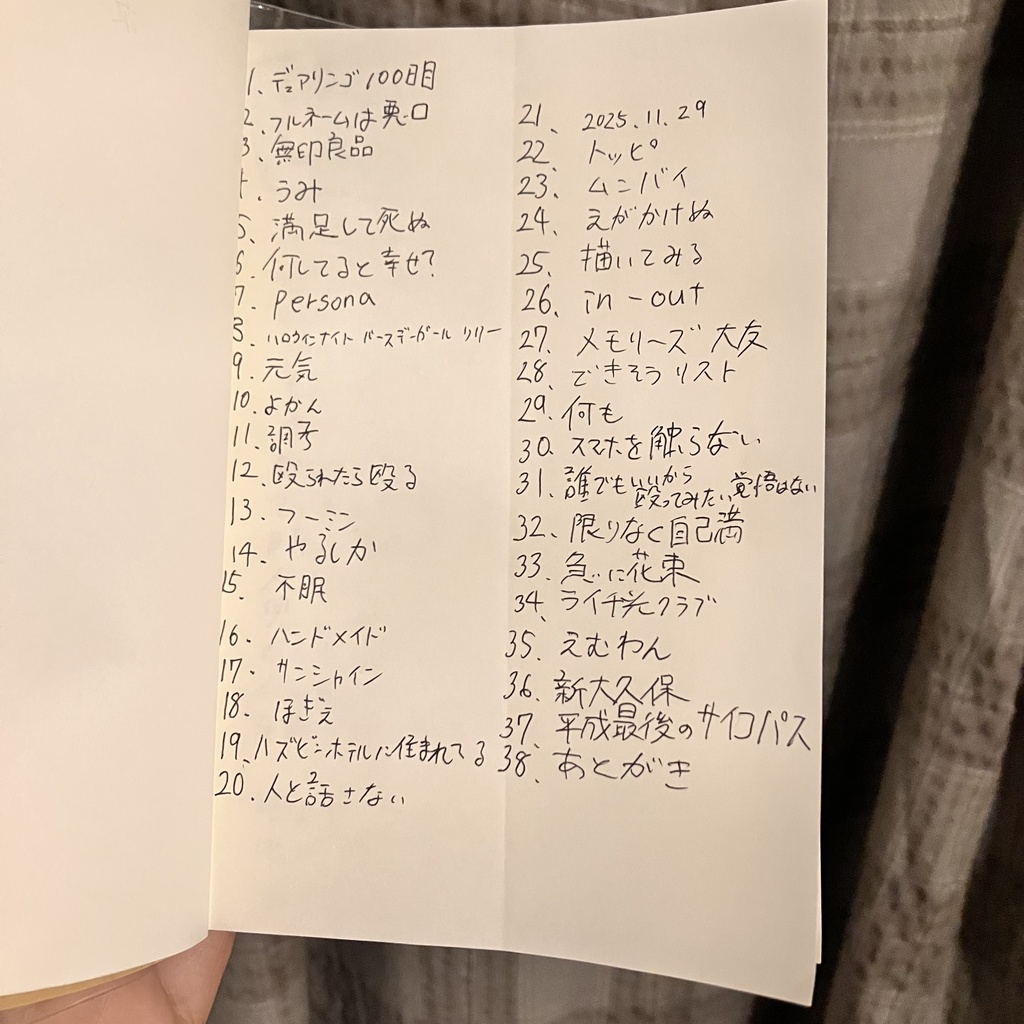 1、デュアリンゴ100日目
2、フルネームは悪口
3、無印良品
4、うみ
5、満足して死ぬ
6、何してると幸せ?
7、persona
8、ハロウィンナイト バースデーガール リリー
9、元気
10、よかん
11、調考
12、殴られたら殴る
13、フーミン
14、やるしか
15、不眠
16、ハンドメイド
17、サンシャイン
18、ほぎえ
19、ハズビンホテルに住まれてる
20、人と話さない
21、2025.11.29
22、トッピ
23、ムンバイ
24、えがかけぬ
25、描いてみる
26、in-out
27、メモリーズ 大友
28、できそうリスト
29、何も
30、スマホを触らない
31、誰でもいいから殴ってみたい覚悟はない
32、限りなく自己満
33、急に花束
34、ライチ光クラブ
35、えむわん
36、新大久保
37、平成最後のサイコパス
38、あとがき